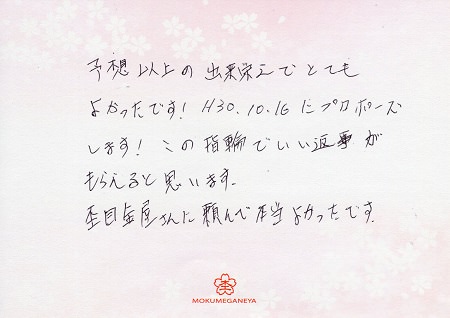 予想以上の出来栄えでとても
よかったです! H30.10.16にプロポーズ
します! この指輪でいい返事が
もらえると思います.
杢目金屋さんに頼んで本当よかったです.
杢
MOKUMEGANEYA